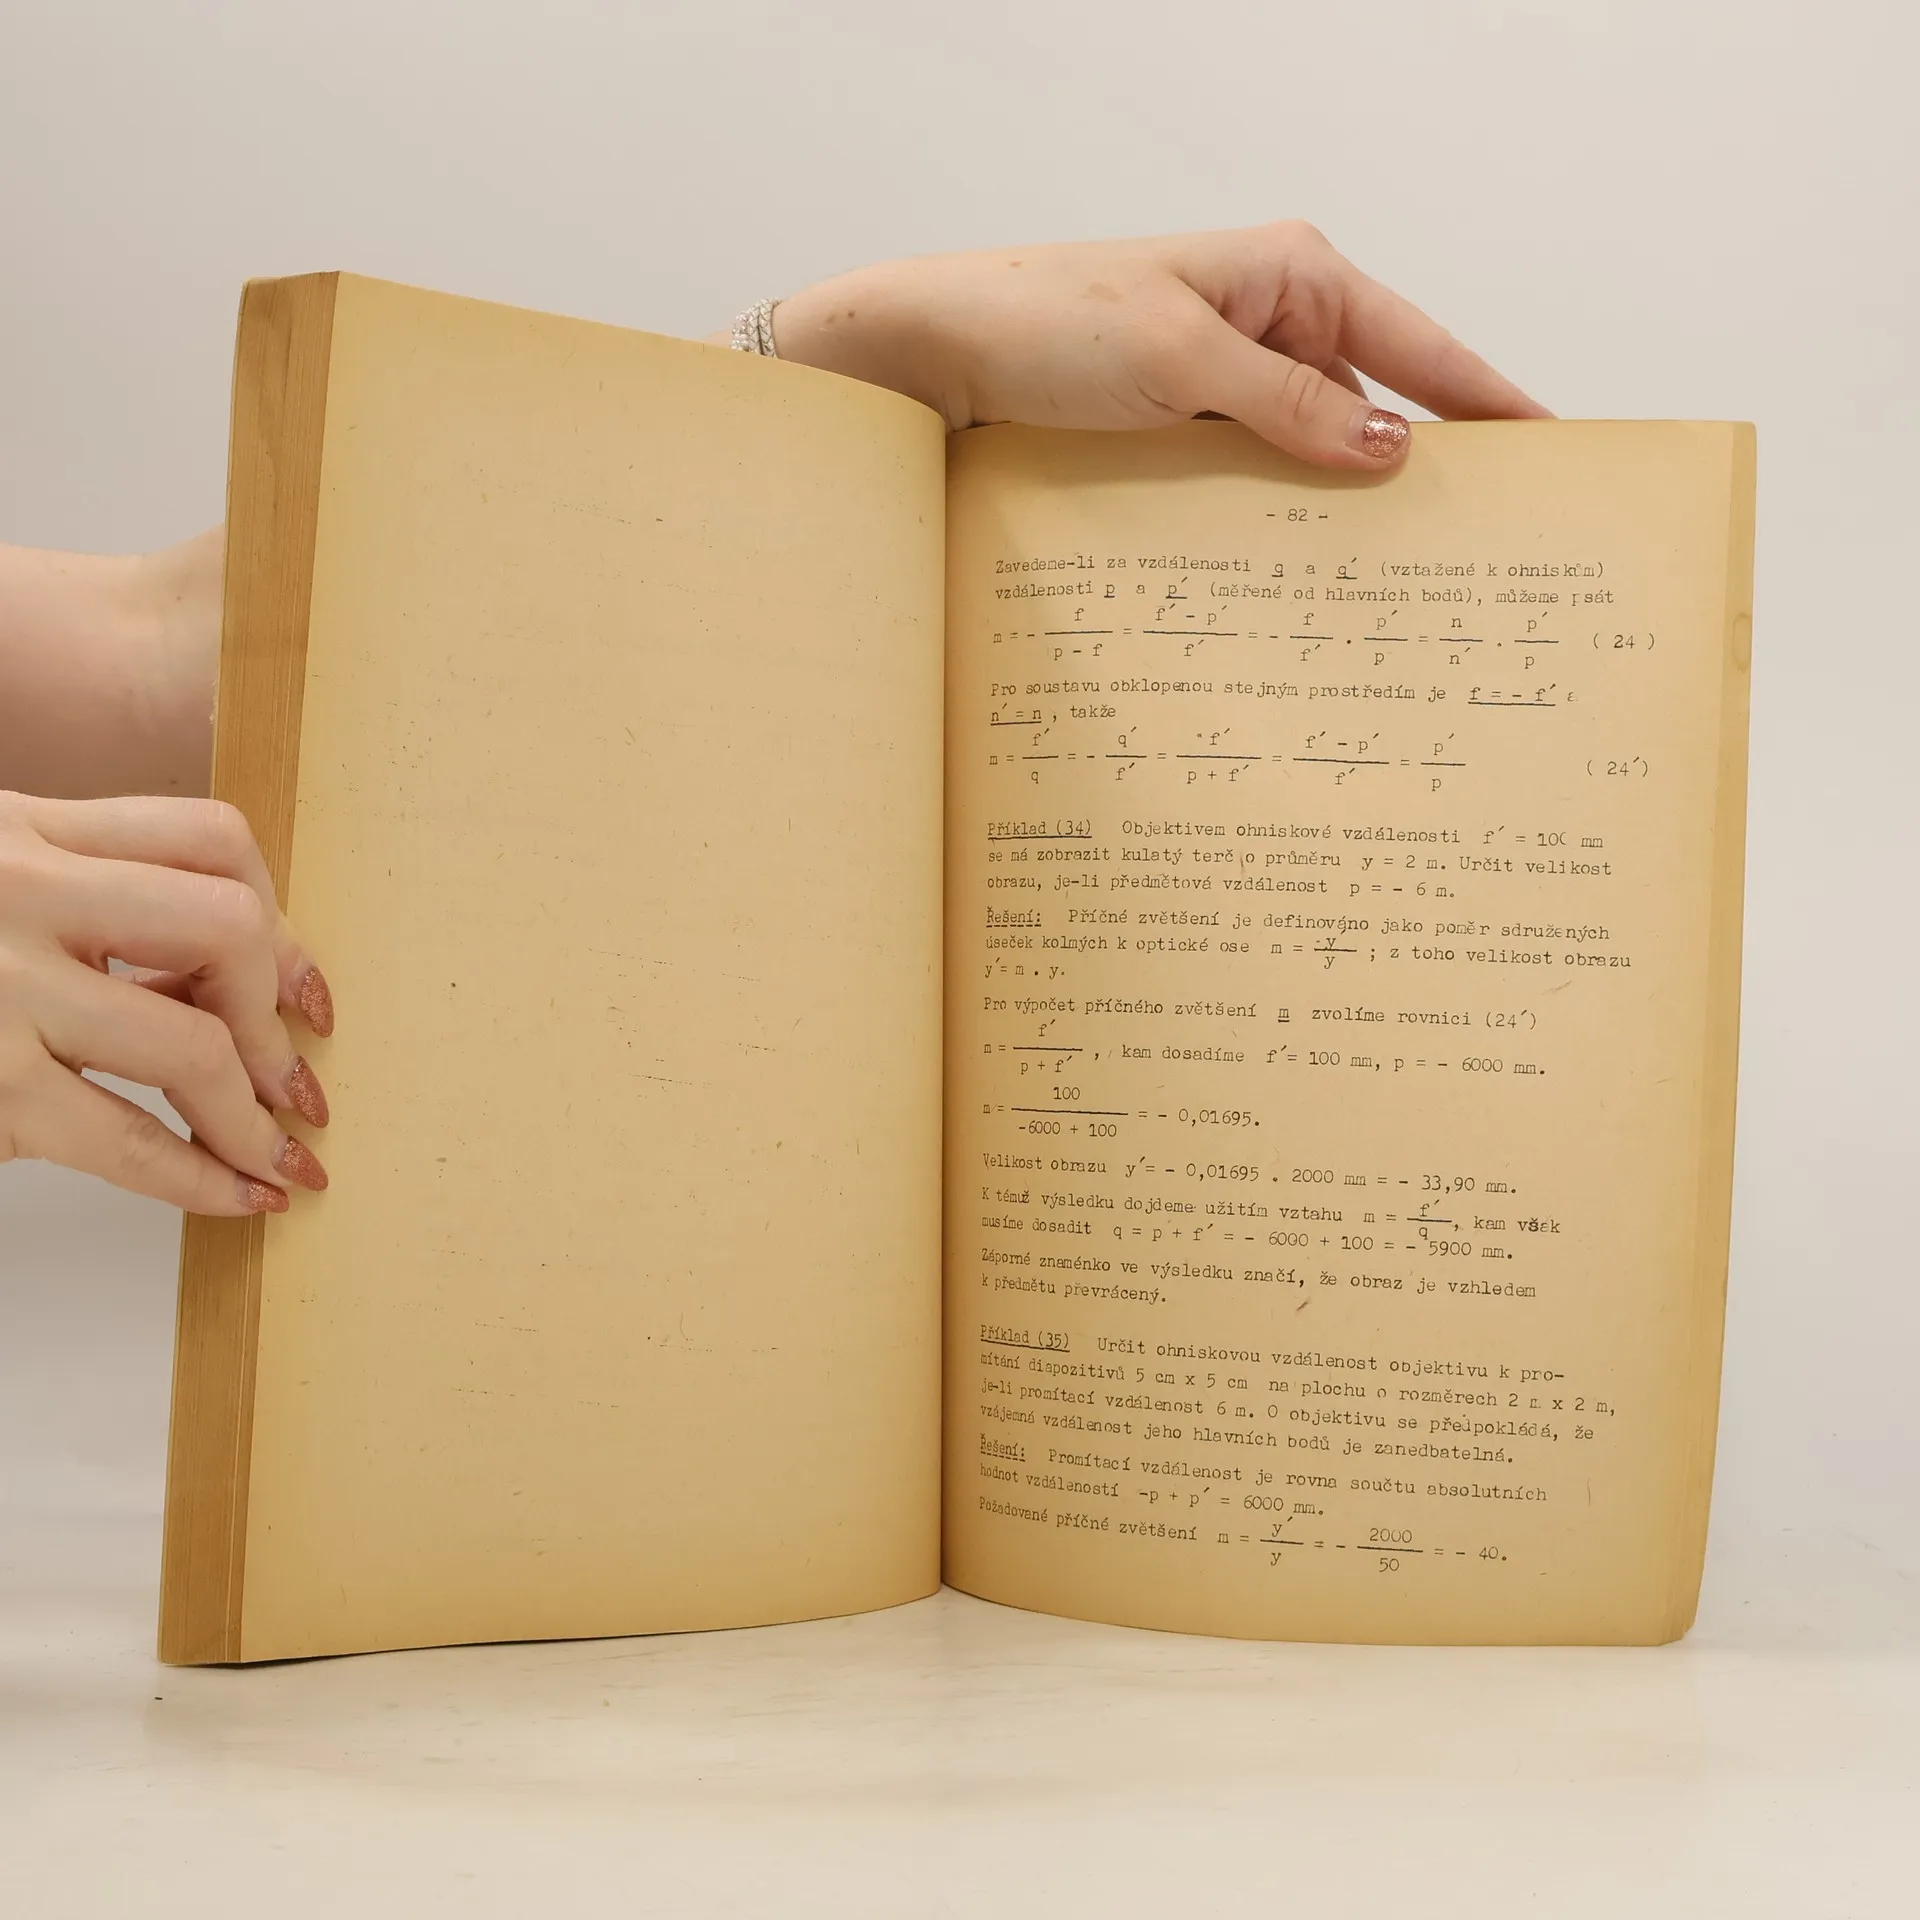 - 82 -
Zavedeme-li za vzdálenosti q a q′ (vztažené k ohniskům)
vzdálenosti p a p′ (měřené od hlavních bodů), můžeme psát
m = - f / (p - f) = (f′ - p′) / f′ = - f / f′ . p′ / p = n / n′ . p′ / p ( 24 )
Pro soustavu obklopenou stejným prostředím je f = - f′ a
n′ = n , takže
m = f′ / q = - q′ / f′ = f′ / (p + f′) = (f′ - p′) / f′ = p′ / p ( 24′)
Příklad (34) Objektivem ohniskové vzdálenosti f′ = 100 mm
se má zobrazit kulatý terč o průměru y = 2 m. Určit velikost
obrazu, je-li předmětová vzdálenost p = - 6 m.
Řešení: Příčné zvětšení je definováno jako poměr sdružených
úseček kolmých k optické ose m = y / y ; z toho velikost obrazu
y′= m . y.
Pro výpočet příčného zvětšení m zvolíme rovnici (24′)
m = f′ / (p + f′) , kam dosadíme f′= 100 mm, p = - 6000 mm.
m = 100 / (-6000 + 100) = - 0,01695.
Velikost obrazu y′= - 0,01695 . 2000 mm = - 33,90 mm.
K témuž výsledku dojdeme užitím vztahu m = f′ / q , kam však
musíme dosadit q = p + f′ = - 6000 + 100 = - 5900 mm.
Záporné znaménko ve výsledku značí, že obraz je vzhledem
k předmětu převrácený.
Příklad (35) Určit ohniskovou vzdálenost objektivu k pro-
mítání diapozitivů 5 cm x 5 cm na plochu o rozměrech 2 m x 2 m,
je-li promítací vzdálenost 6 m. O objektivu se předpokládá, že
vzájemná vzdálenost jeho hlavních bodů je zanedbatelná.
Řešení: Promítací vzdálenost je rovna součtu absolutních
hodnot vzdáleností -p + p′ = 6000 mm.
Požadované příčné zvětšení m = y′ / y = - 2000 / 50 = - 40.